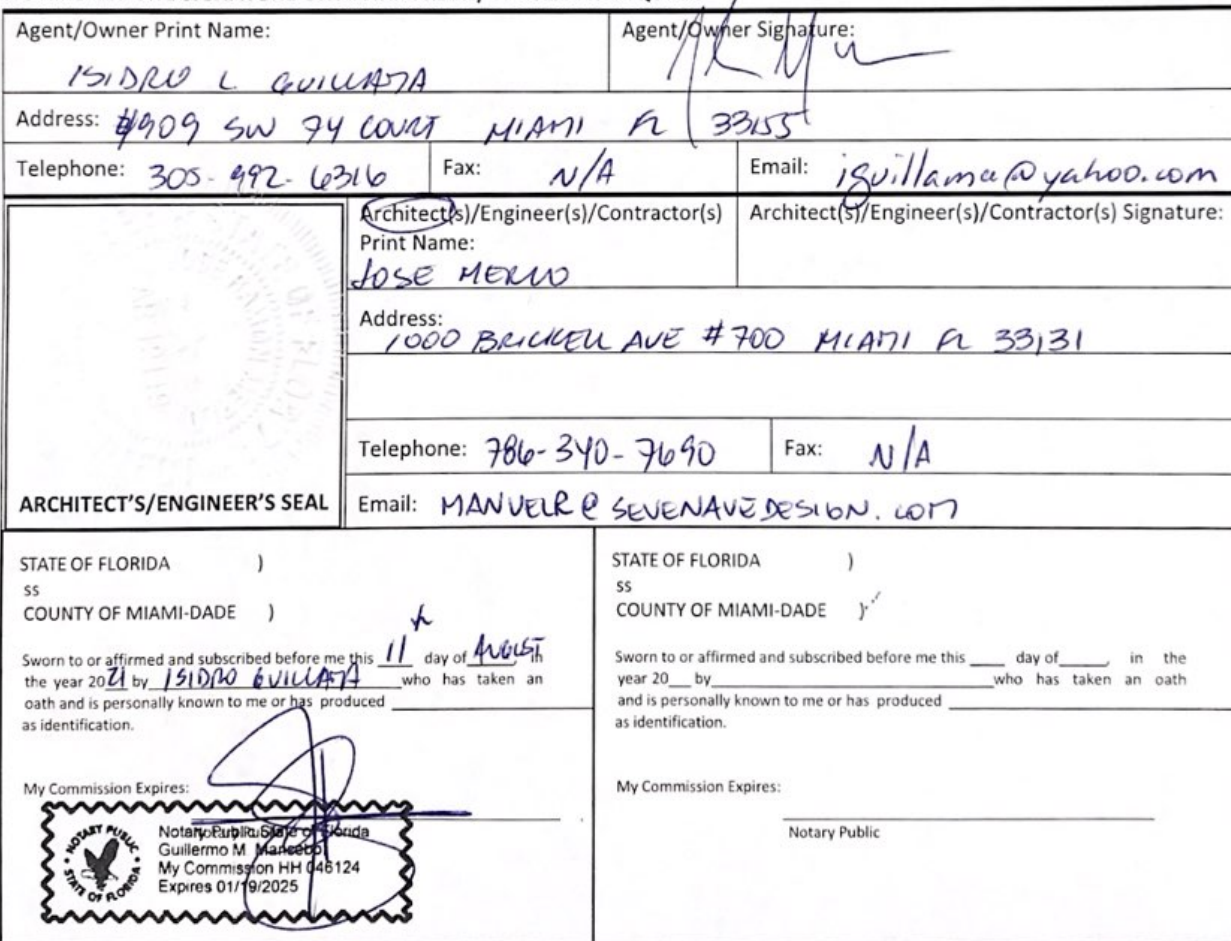 Agent/Owner Print Name:
ISIDRO L GUILLAMA
Agent/Owner Signature:
Address: 4909 SW 74 COURT MIAMI FL 33155
Telephone: 305-992-6316
Fax: N/A
Email: iguillama@yahoo.com
Architect(s)/Engineer(s)/Contractor(s)
Print Name:
JOSE
Architect(s)/Engineer(s)/Contractor(s) Signature:
Address:
1000 BRICKELL AVE #700 MIAMI FL 33131
Telephone: 786-340-7690
Fax: N/A
ARCHITECT'S/ENGINEER'S SEAL
Email: MANUELR@SEVENAVEDESIGN.COM
STATE OF FLORIDA )
ss
COUNTY OF MIAMI-DADE )
Sworn to or affirmed and subscribed before me this 11th day of AUGUST, in
the year 2021 by ISIDRO GUILLAMA who has taken an
oath and is personally known to me or has produced
as identification.
My Commission Expires:
Notary Public State of Florida
Guillermo M Mancebo
My Commission HH 046124
Expires 01/19/2025
NOTARY PUBLIC
STATE OF FLORIDA
STATE OF FLORIDA )
ss
COUNTY OF MIAMI-DADE )
Sworn to or affirmed and subscribed before me this ____ day of____, in the
year 20__ by____ who has taken an oath
and is personally known to me or has produced ____
as identification.
My Commission Expires:
Notary Public